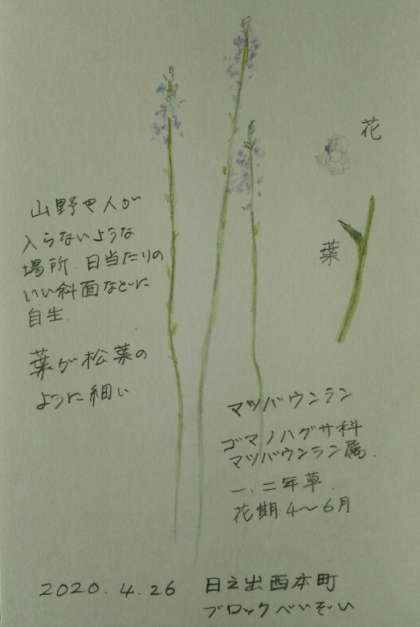 花
山野や人が
入らないような
場所、日当たりの
いい斜面などに
自生.
葉
葉が松葉の
ように細い
マツバウンラン
ゴマノハグサ科
マツバウンラン属.
一、二年草.
花期4〜6月
2020.4.26 日之出西本町
ブロックべいぞい